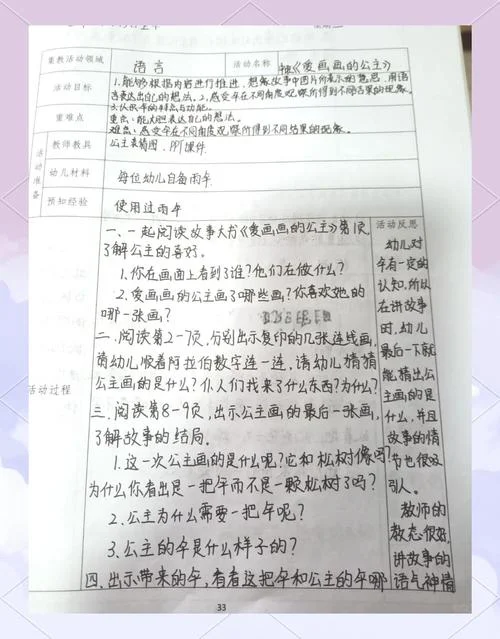 集教活动领域 语言 活动名称 《爱画画的公主》
活动目标 1.能够根据内容进行推进,想象故事中图片所表示的意思,用语
言表达出自己的想法。2.感受伞在不同角度观察所得到不同结果的现象。
3.认识伞的特点与功能。
重难点 重点:能大胆表达自己的想法。
难点:感受伞在不同角度观察所得到不同结果的现象。
活动准备
教师教具 公主表情图、PPT课件
幼儿材料 每位幼儿自备雨伞
预知经验 使用过雨伞
活动过程
一、一起阅读故事大书《爱画画的公主》第1页,
了解公主的喜好。
1.你在画面上看到了谁?他们在做什么?
2.爱画画的公主画了哪些画?你喜欢她的
哪一张画?
二、阅读第2-7页,分别出示复印的几张连线画,
请幼儿顺着阿拉伯数字连一连,请幼儿猜猜
公主画的是什么?仆人们找来了什么东西?为什么?
三、阅读第8-9页,出示公主画的最后一张画,
了解故事的结局。
1.这一次公主画的是什么呢?它和松树像吗?
为什么你看出是一把伞而不是一颗松树了吗?
2.公主为什么需要一把伞呢?
3.公主的伞是什么样子的?
四、出示带来的伞,看看这把伞和公主的伞哪
活动反思
幼儿对
伞有一定的
认知,所以
在讲故事
时,幼儿
最后一下就
能猜出公
主画的是
什么,并且
故事的情
节也很吸
引人。
教师的
教态很好,
讲故事的
语气神情
33